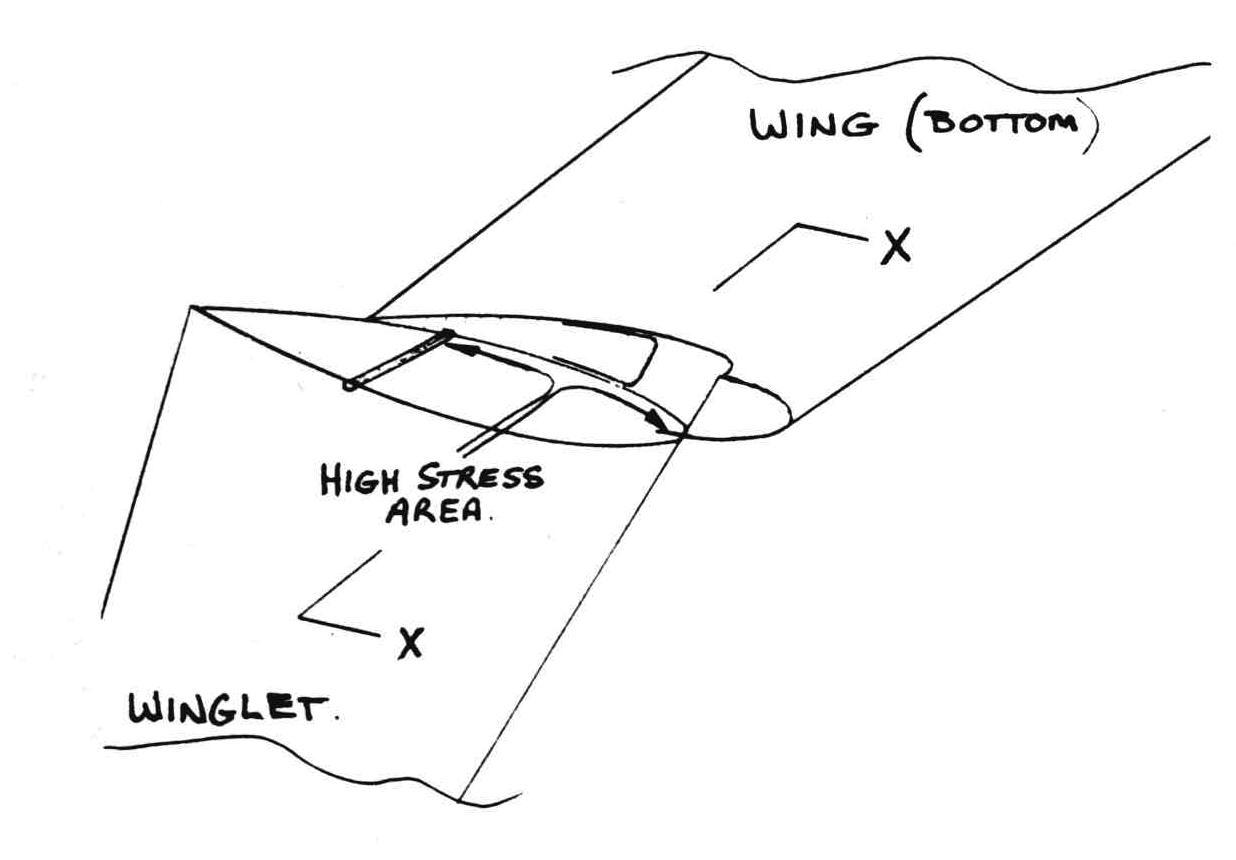 WING (BOTTOM)
X
HIGH STRESS
AREA.
X
WINGLET.